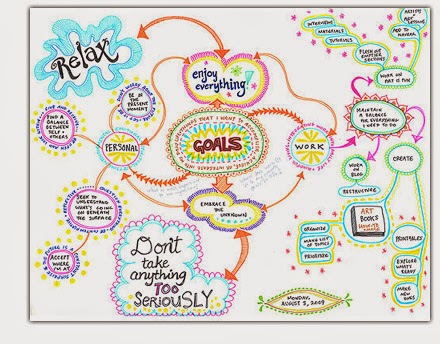 Relax
enjoy
everything!
BE IN
THE
PRESENT
MOMENT
FIND A
BALANCE
BETWEEN
SELF +
OTHERS
PERSONAL
SEEK TO
UNDERSTAND
WHAT'S GOING
ON BENEATH
THE SURFACE
ACCEPT
WHERE
I'M AT
GOALS
EMBRACE
THE
UNKNOWN
Don't
take
anything
TOO
SERIOUSLY
WORK
INTERVIEWS
MATERIALS
TUTORIALS
FLESH OUT
EMPTIER
SECTIONS
ADD TO
WORK ON
ART IS FUN
MAINTAIN
A BALANCE
OF EVERYTHING
I NEED TO DO
WORK
ON
BLOG
CREATE
RESTRUCTURE
ART
BOOKS
ORGANIZE
MAKE LIST
OF TOPICS
PRIORITIZE
PRINTABLES
EXPLORE
WHAT'S
READY
MAKE
NEW
ONES
MONDAY,
AUGUST 3, 2009